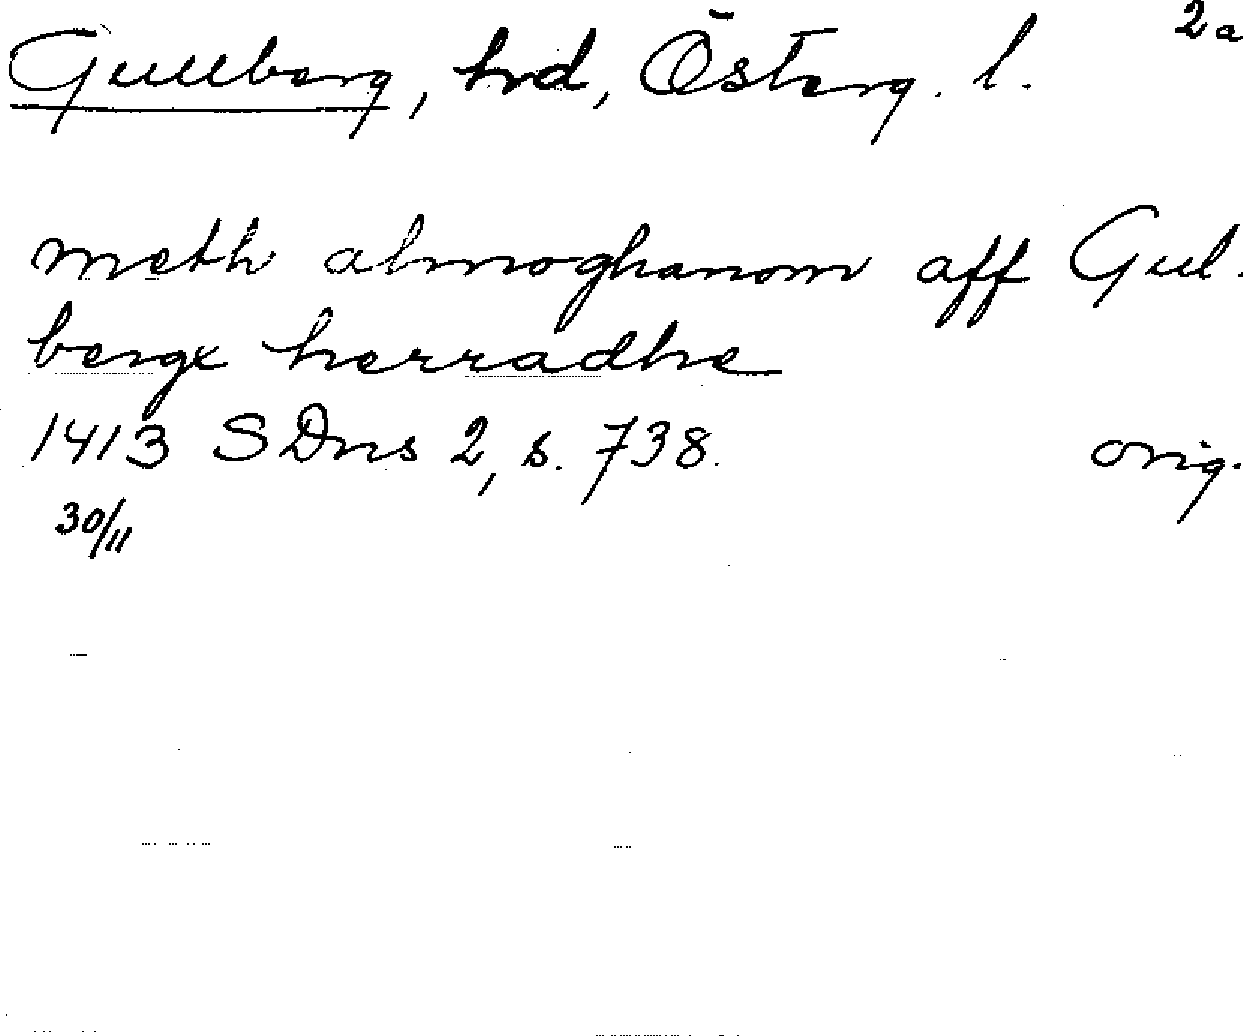 Gullberg, hrd, Österg. l. 2a
meth almoghanom aff Gul-
bergx herradhe
1413 SDns 2, s. 738. orig.
30/11